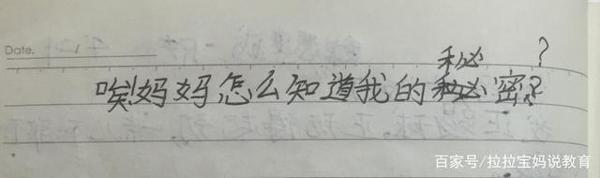 Date.
秘 ?
唉妈妈怎么知道我的秘密?
百家号/拉拉宝妈说教育